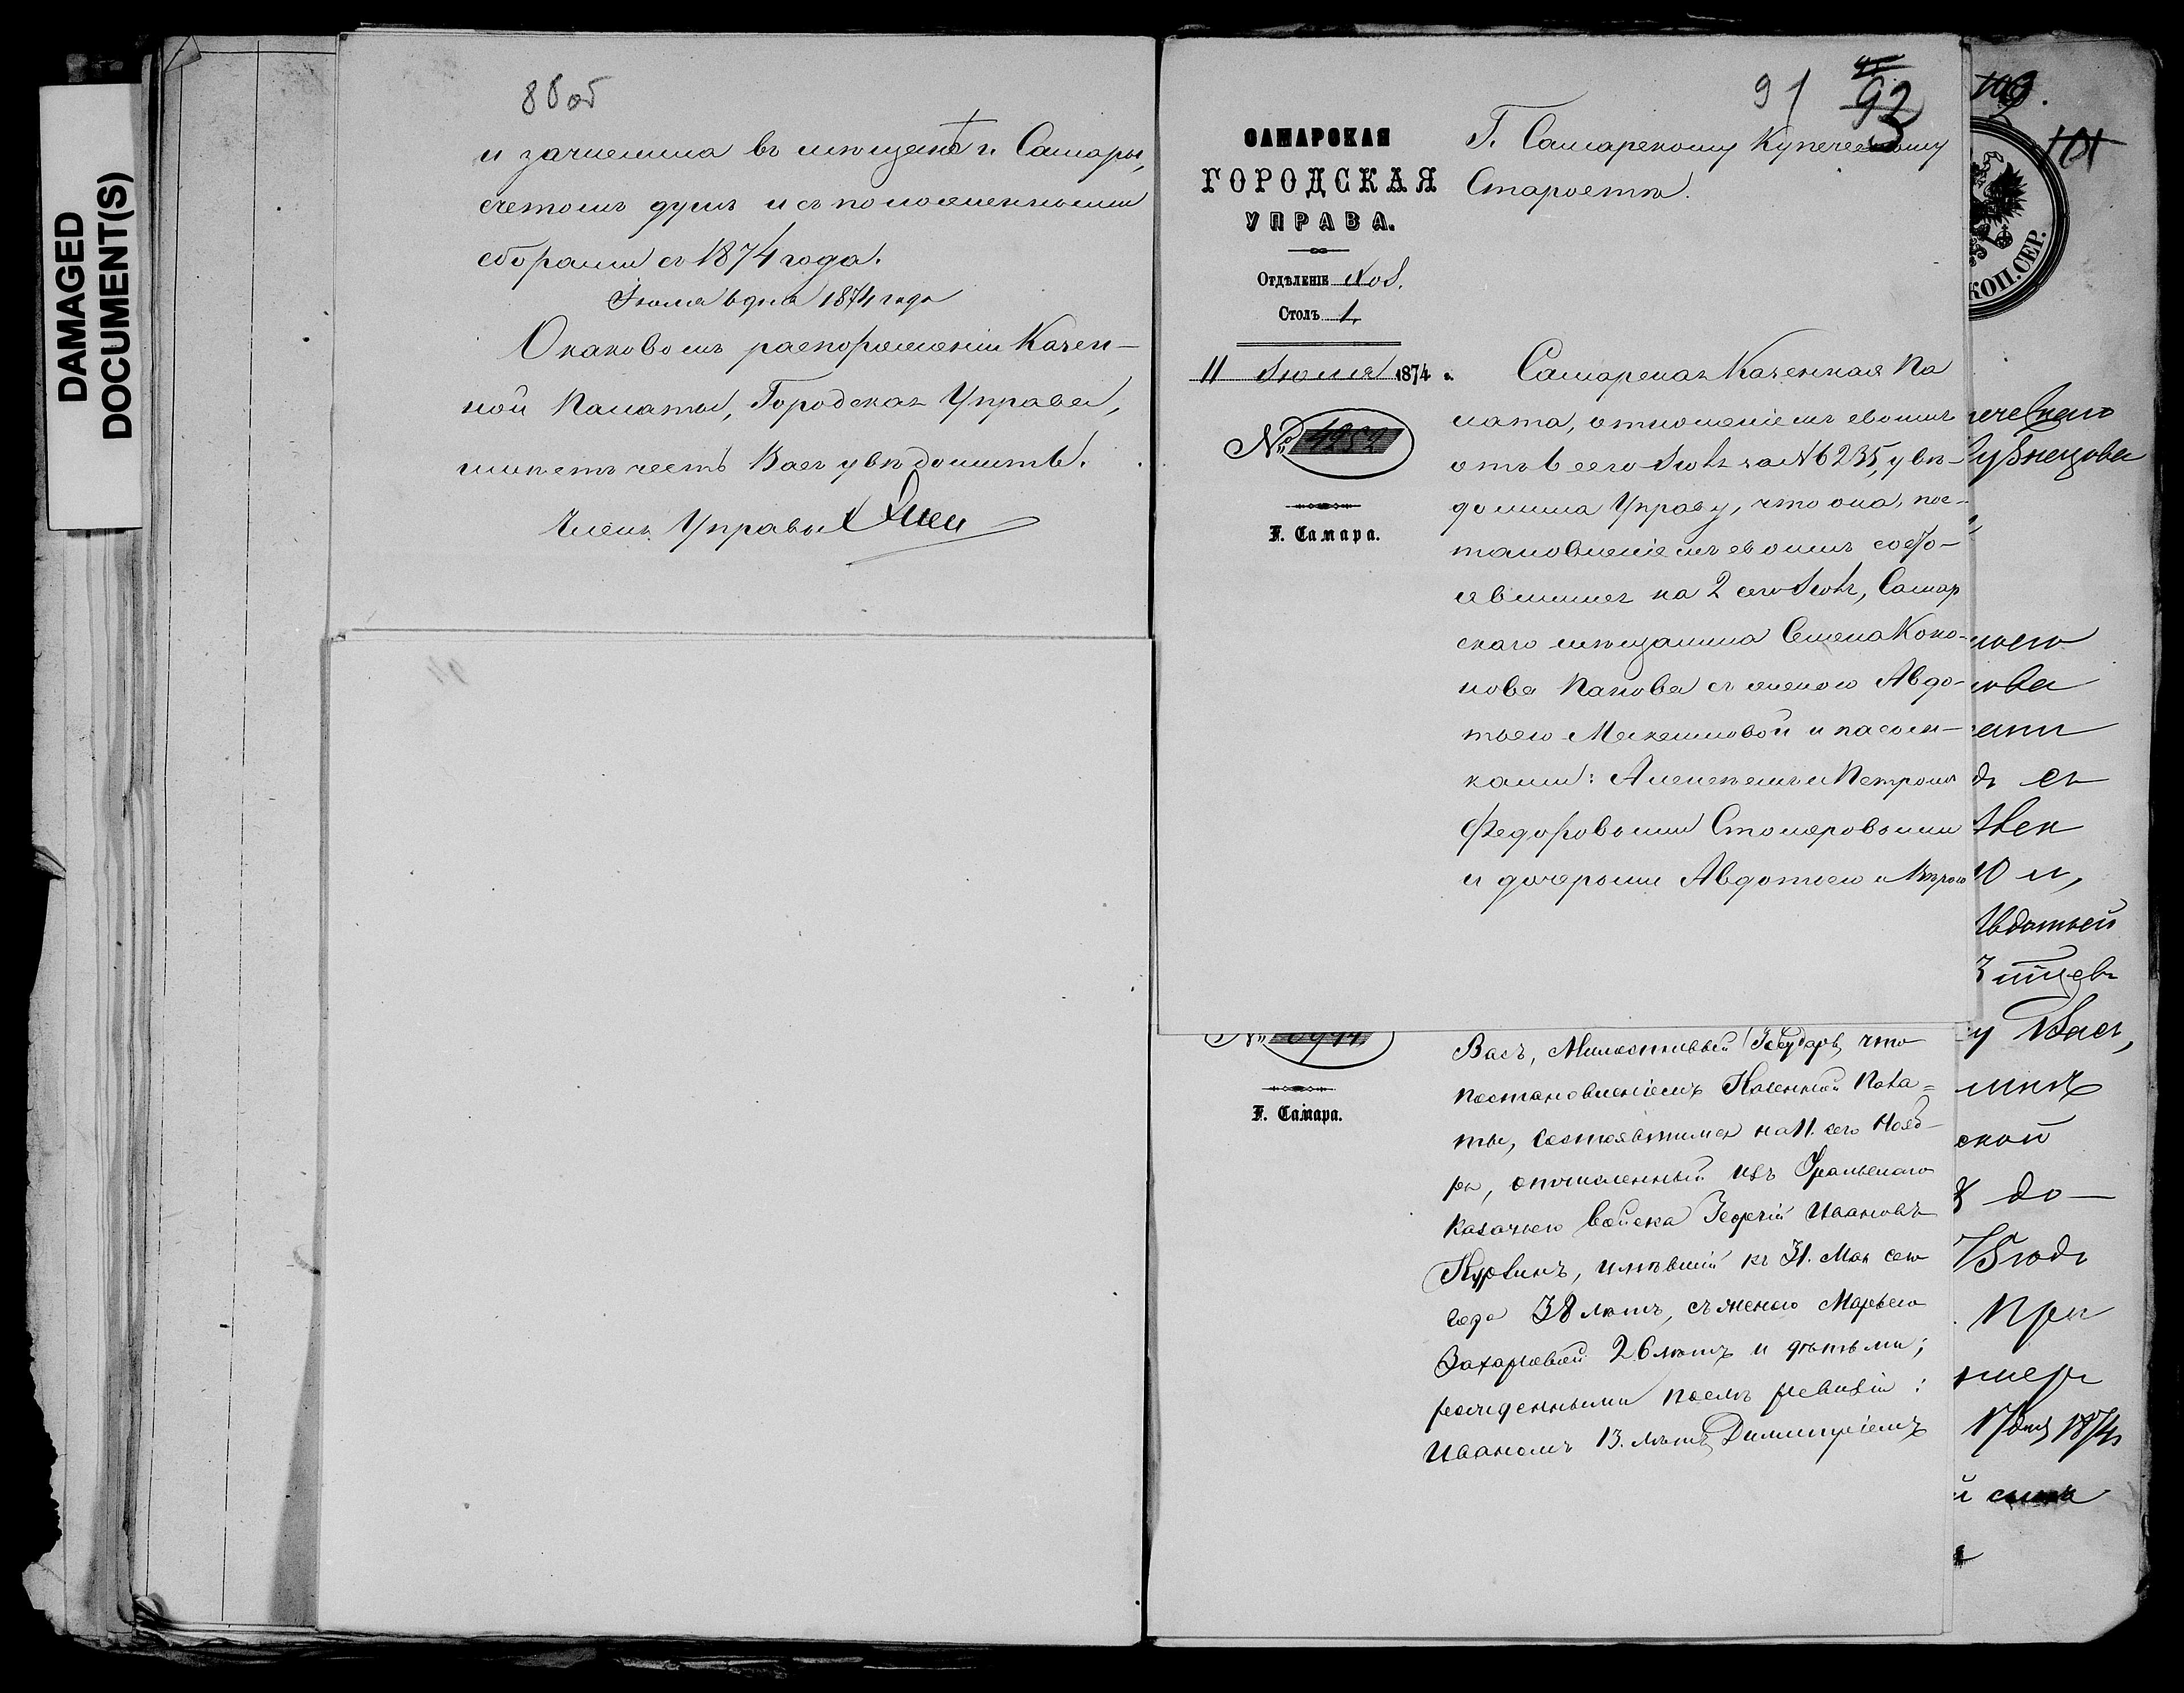 DAMAGED
DOCUMENT(S)
88 об
и зачислила въ мѣщане г. Самары,
счетомъ душъ и съ положенными
сборами съ 1874 года.
Іюля 6 дня 1874 года
О каковомъ распоряженіи Казен-
ной Палаты, Городская Управа,
имѣетъ честь Васъ увѣдомить.
Членъ Управы
91 93
САМАРСКАЯ
ГОРОДСКАЯ
УПРАВА.
Отдѣленіе Хоз.
Столъ 1.
11 Іюля 1874 г.
№ 4252
Г. Самара.
Г. Самарскому Купеческому
Старостѣ.
Самарская Казенная Па
лата, отношеніемъ своимъ
отъ 6 сего Іюля за № 6235, увѣ-
домила Управу, что она, пос-
тановленіемъ своимъ состо-
явшимся на 2 сего Іюля, Самар
скаго мѣщанина Семена Коно-
нова Панова съ женою Авдо-
тьею Максимовой и пасын-
ками: Алексѣемъ и Петромъ
Федоровыми Столяровыми
и дочерьми Авдотьею и Вѣрою
№
Г. Самара.
Васъ, Милостивый Государь, что
постановленіемъ Казенной Пала=
ты, состоявшимся на 11. сего Нояб-
ря, отчисленный изъ Уральскаго
казачьяго войска Георгій Ивановъ
имѣвшій къ 31. Мая сего
года 38 лѣтъ, съ женою Марьею
Захаровой 26 лѣтъ и дѣтьми;
рожденными послѣ ревизіи:
Иваномъ 13. лѣтъ, Димитріемъ
101
КОП. СЕР.
ческаго
Кузнецова
съ
10 л,
Авдотьей
у Васъ,
ской
до-
При
17 дня 1874